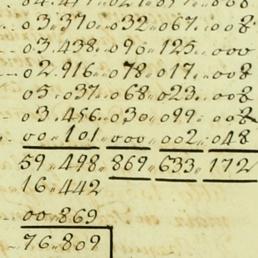 03.370..032..067..008
03.438..090..125..000
02.916..078..017..008
05..037..068..023..008
03.456..030..099..008
00..101..000..002..048
59..498..869..633..172
16..442
00..869
76..809